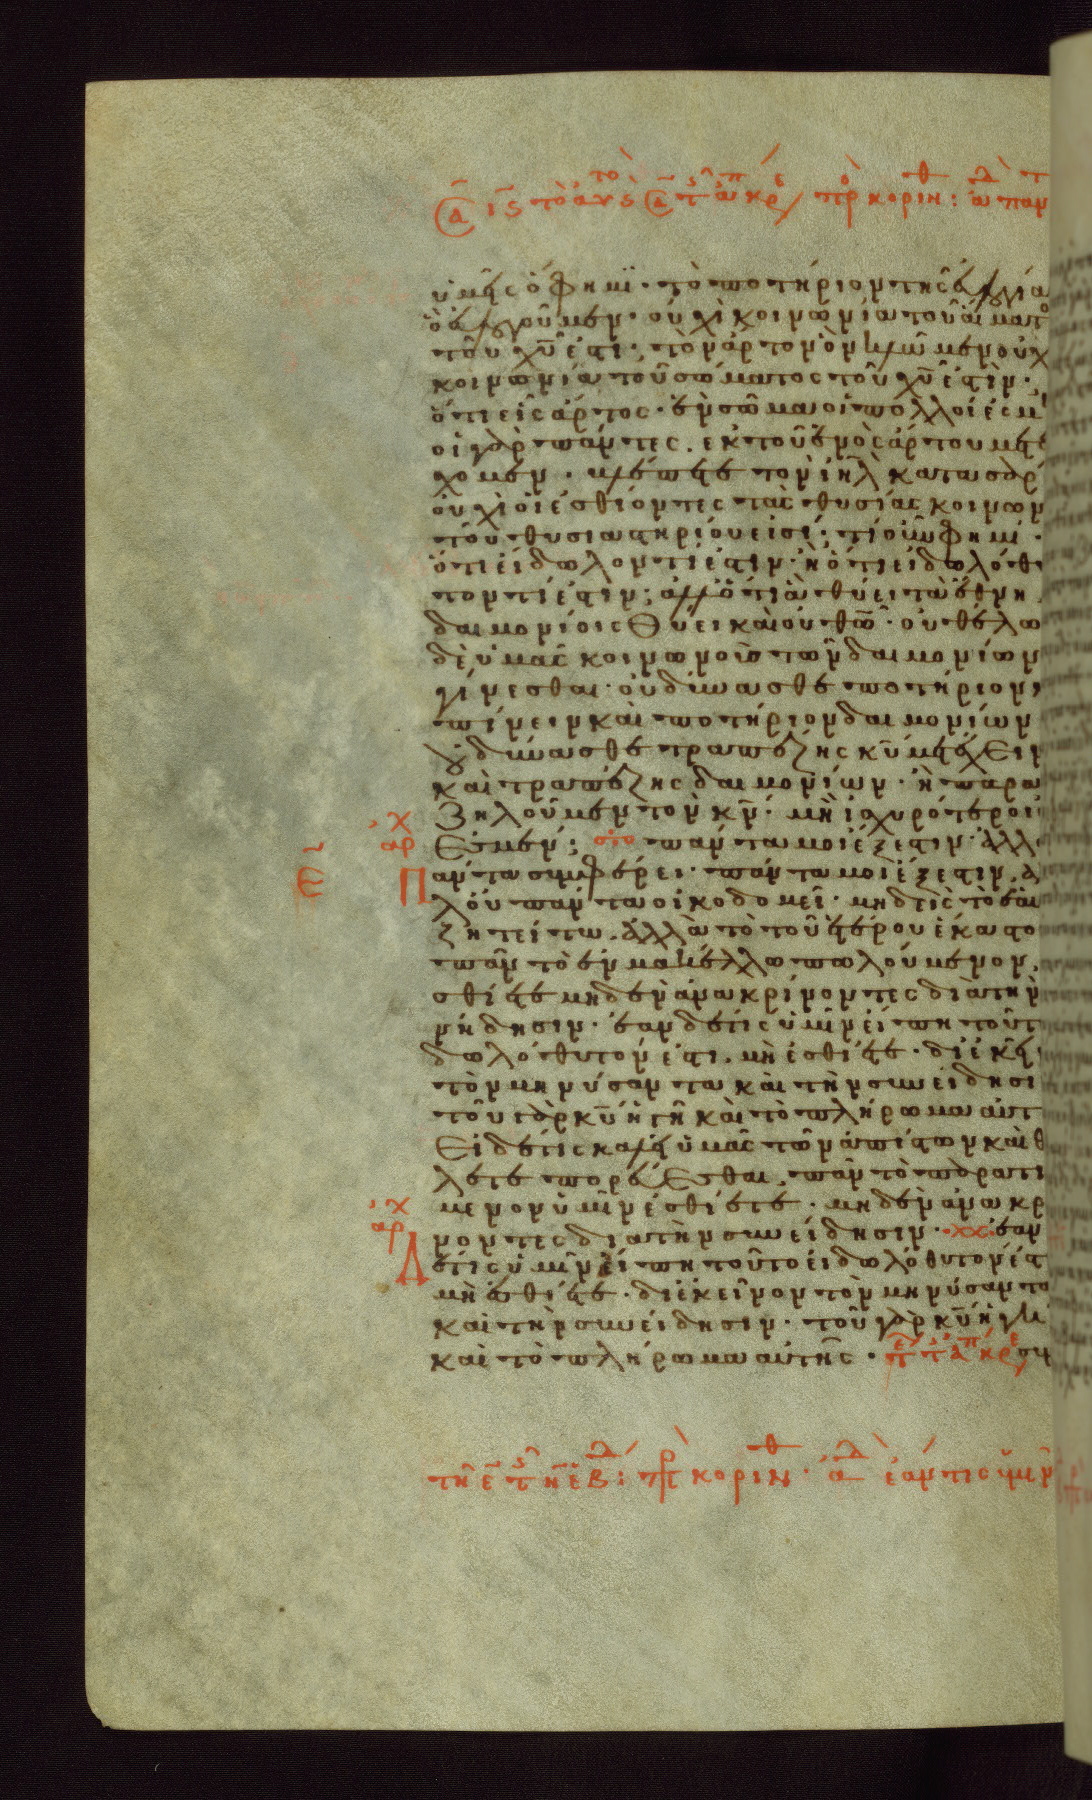 ὑμεῖς ὅ φημι· τὸ ποτήριον τῆς εὐλογία
ὃ εὐλογοῦμεν· οὐχὶ κοινωνία τοῦ αἵματο
τοῦ χῦ ἐστι; τὸν ἄρτον ὃν κλῶμεν οὐχ
κοινωνία τοῦ σώματος τοῦ χῦ ἐστὶν·
ὅτι εἷς ἄρτος· ἓν σῶμα οἱ πολλοί ἐσμ
οἱ γὰρ πάντες ἐκ τοῦ ἑνὸς ἄρτου μετέ
χομεν· βλέπετε τὸν ἰηλ κατα σάρ
οὐχὶ οἱ ἐσθίοντες τὰς θυσίας κοινων
τοῦ θυσιαστηρίου εἰσί; τί οὖν φημι·
ὅτι εἴδωλον τί ἐστιν· ἢ ὅτι εἰδωλόθυ
τον τί ἐστιν; ἀλλ' ὅτι ἃ θύει τὰ ἔθνη
δαιμονίοις θύει καὶ οὐ θῶ· οὐ θέλω
δὲ ὑμᾶς κοινωνοὺς τῶν δαιμονίων
γίνεσθαι· οὐ δύνασθε ποτήριον
πίνειν καὶ ποτήριον δαιμονίων
οὐ δύνασθε τραπέζης κῦ μετέχειν
καὶ τραπέζης δαιμονίων· ἢ παρα
ζηλοῦμεν τὸν κν· μὴ ἰσχυρότεροι
ἐσμέν; πάντα μοι ἔξεστιν· ἀλλ
Πάντα συμφέρει· πάντα μοι ἔξεστιν ἀ
λλ' οὐ πάντα οἰκοδομεῖ· μηδεὶς τὸ ἑαυ
ζητείτω· ἀλλὰ τὸ τοῦ ἑτέρου ἕκαστο
πᾶν τὸ ἐν μακέλλω πωλούμενον
σθίετε μηδὲν ἀνακρίνοντες διὰ τὴν
νείδησιν· ἐὰν δέ τις ὑμῖν εἴπη τοῦτ
δωλόθυτον ἐστι μὴ ἐσθίετε· δι' ἐκεῖ
τὸν μηνύσαντα καὶ τὴν συνείδησι
τοῦ γὰρ κῦ ἡ γῆ καὶ τὸ πλήρωμα αὐτ
Εἰ δέ τις καλεῖ ὑμᾶς τῶν ἀπίστων καὶ θ
λετε πορεύεσθαι πᾶν τὸ παρατι
μενον ὑμῖν ἐσθίετε· μηδὲν ἀνακρ
νοντες διὰ τὴν συνείδησιν· ἐὰν
Δέ τις ὑμῖν εἴπη τοῦτο εἰδωλόθυτον ἐστ
μὴ ἐσθίετε· δι' ἐκεῖνον τὸν μηνύσαντα
καὶ τὴν συνείδησιν· τοῦ γὰρ κῦ ἡ γῆ
καὶ τὸ πλήρωμα αὐτῆς·